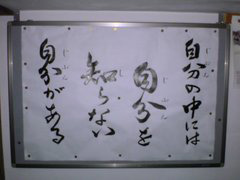 自分の中には
自分を
知らない
自分がある